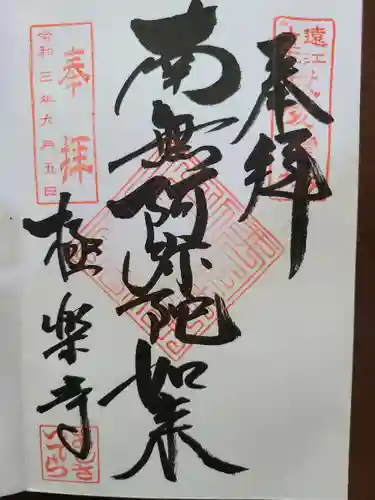 奉拝
南無阿弥陀如来
極楽寺
奉拝
令和三年六月五日
遠江